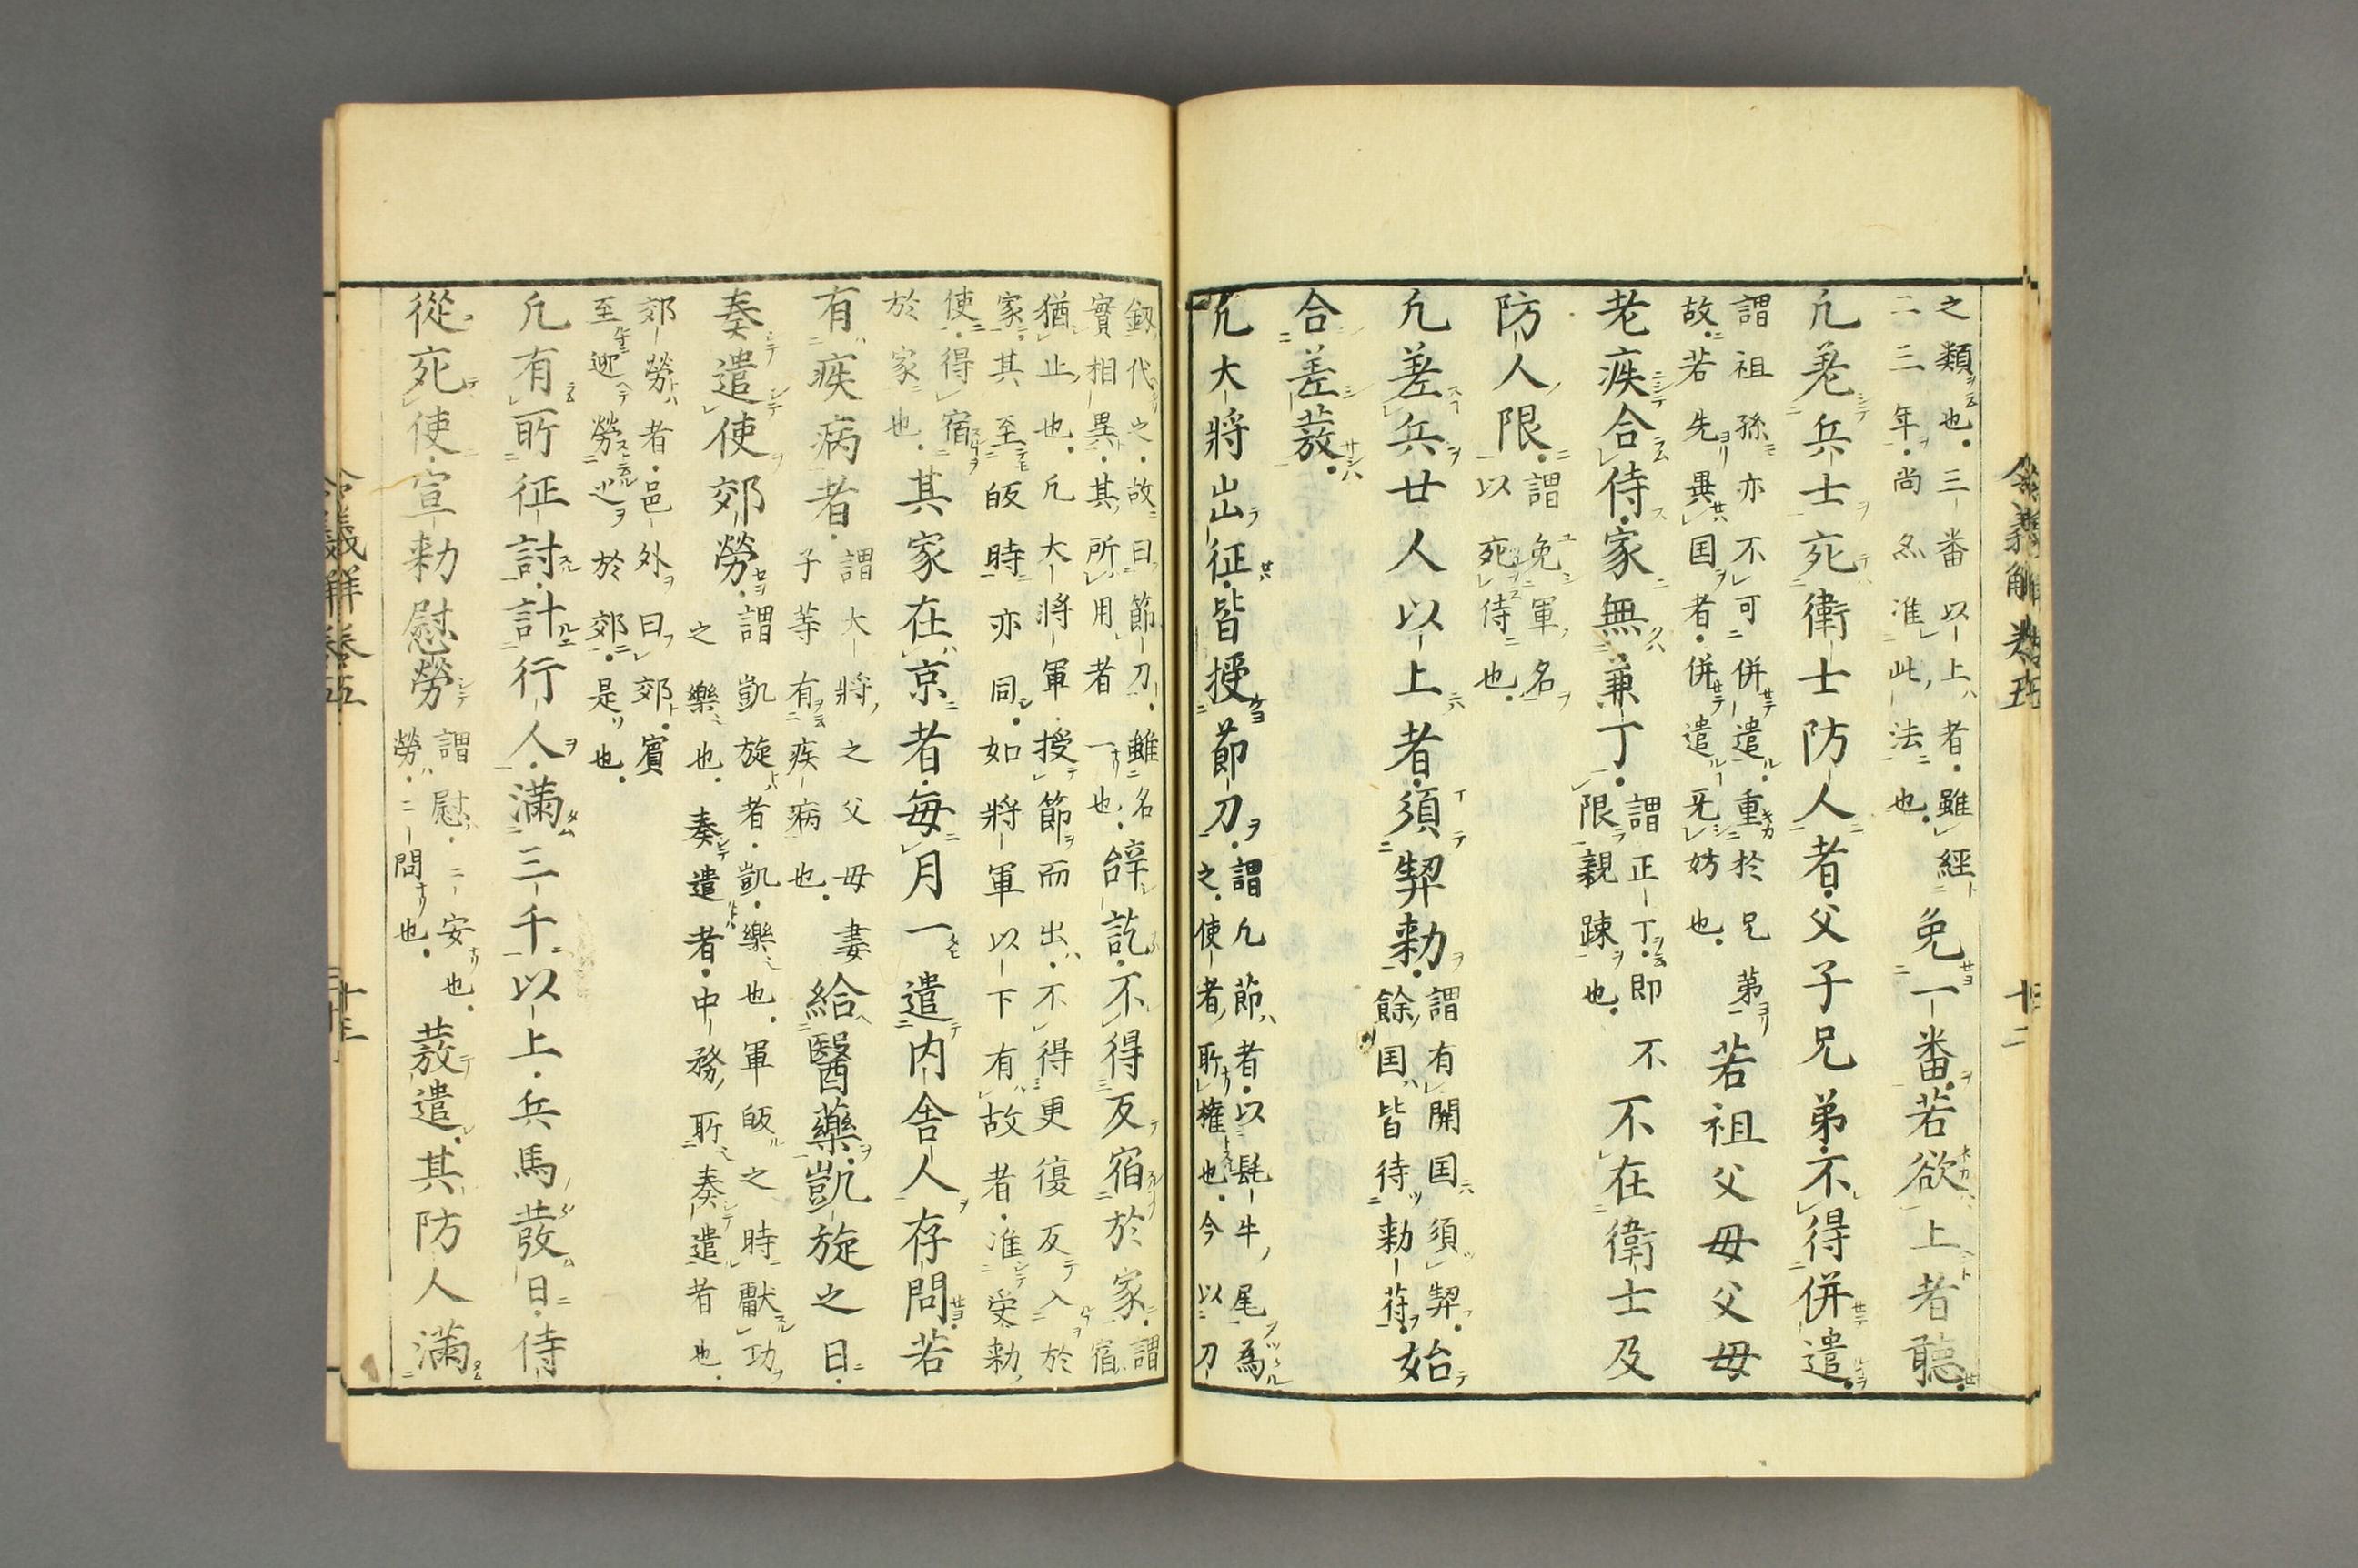 之類也三番以上者雖經
二三年尚亦准此法也
免一番若欲上者聽
凡差兵士死衛士防人者父子兄弟不得併遣
謂祖孫亦不可併遣重於兄弟
故若先畢国者併遣旡妨也
若祖父母父母
老疾合侍家無兼丁
謂正丁即不
限親踈也
不在衛士及
防人限
謂免軍名
以死侍也
凡差兵廿人以上者須契勅
謂有開国須契
餘国皆待勅苻
始
合差蕟
凡大將出征皆授節刀
謂凡節者以髦牛尾為
之使者所権也今以刀
釼代之故曰節刀雖名
實相異其所用者一也
辞訖不得反宿於家
謂宿
猶止也凡大將軍授節而出不得更復反入於
家其至皈時亦同如將軍以下有故者准受勅
使得宿
於家也
其家在京者毎月一遣内舎人存問若
有疾病者
謂大將之父母妻
子等有疾病也
給醫藥凱旋之日
奏遣使郊勞
謂凱旋者凱樂也軍皈之時獻功
之樂也奏遣者中務所奏遣者也
郊勞者邑外曰郊賓
至迎勞之於郊是也
凡有所征討計行人満三千以上兵馬發日侍
從死使宣勅慰勞
謂慰安也
勞問也
蕟遣其防人満
令義解卷五
十二
令義解卷五
十三